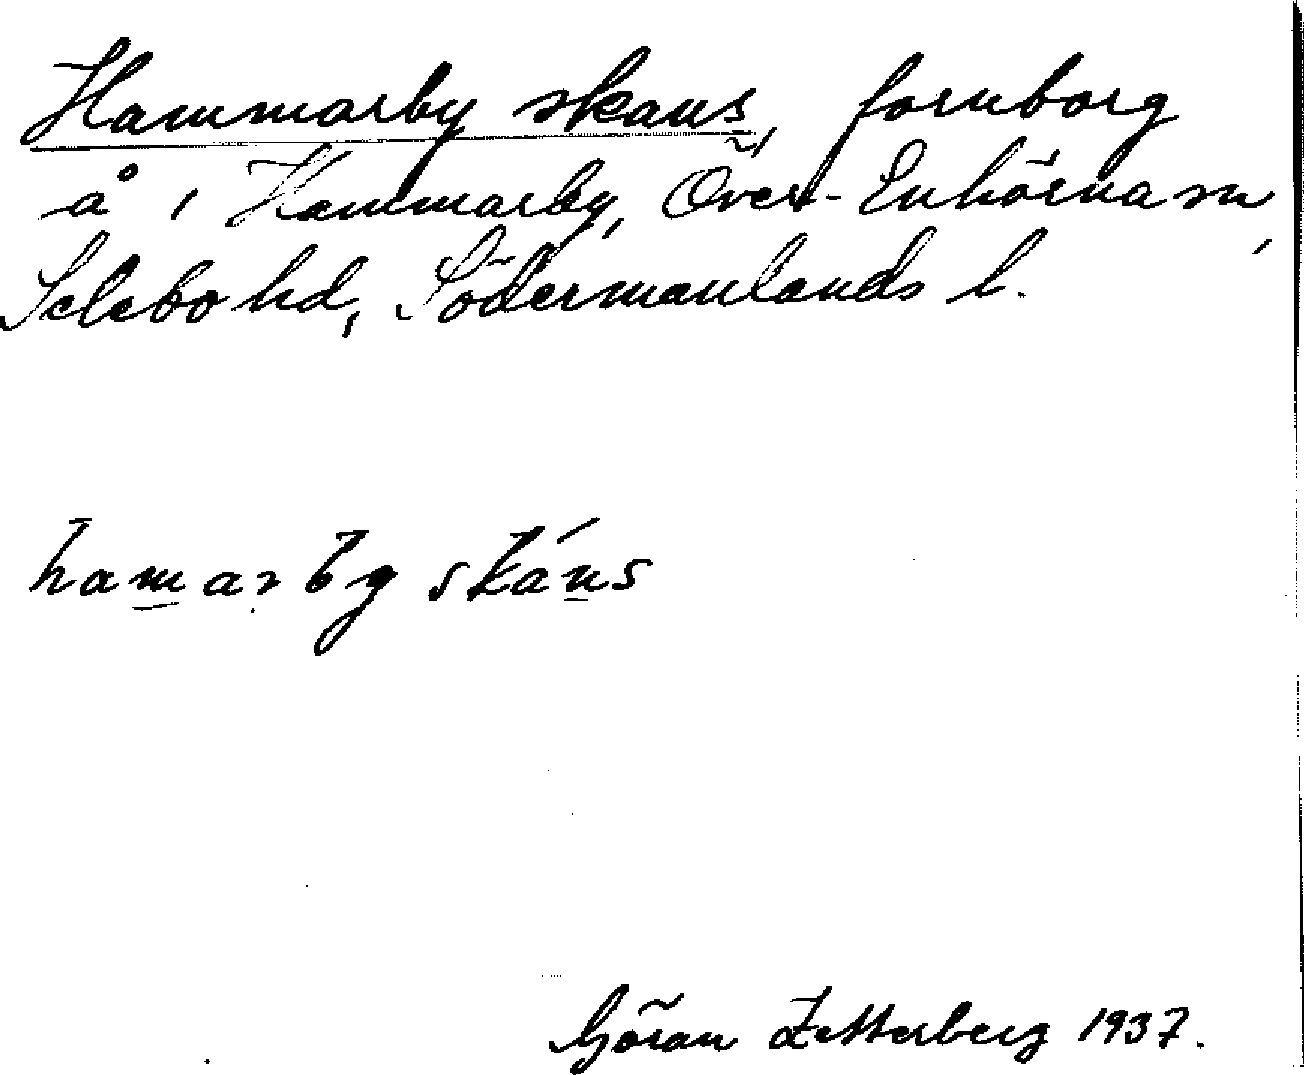 Hammarby skans, fornborg
å i Hammarby, Över-Enhörna sn,
Selebo hd, Södermanlands l.
hamarby skáns
Göran Zetterberg 1937.